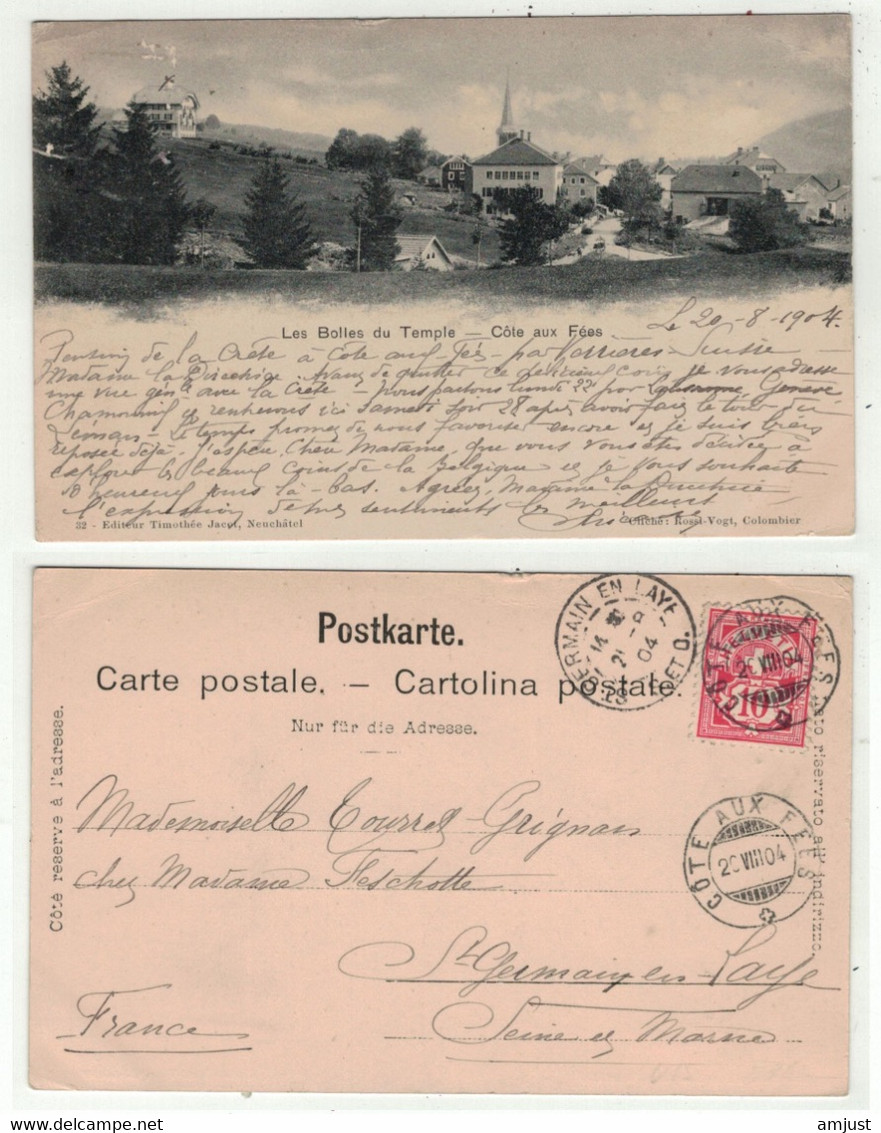 Les Bolles du Temple — Côte aux Fées
Le 20-8-1904.
Pension de la Crête à Côte aux Fées par Verrières-Suisse
Madame la Directrice. Avant de quitter ce délicieux coin je vous adresse
une vue génle avec la Crête - nous partons lundi 22 par Lausanne, Genève
Chamonix et rentrerons ici samedi soir 28 après avoir fait le tour du
Léman - Le temps promet de nous favoriser encore et je suis très
reposée déjà. J'espère, Chère Madame, que vous vous êtes décidée à
explorer les beaux coins de la Belgique et je vous souhaite
d'heureux jours là-bas. Agréez, Madame la Directrice
l'expression de mes sentiments les meilleurs
32 - Editeur Timothée Jacot, Neuchâtel
Cliché: Rossi-Vogt, Colombier
Postkarte.
Carte postale. — Cartolina postale.
Nur für die Adresse.
Côté reservé à l'adresse.
Lato riservato all'indirizzo.
ST GERMAIN EN LAYE
S. ET O.
04
CÔTE AUX FÉES
HELVETIA
10
CÔTE AUX FÉES
20 VIII 04
Mademoiselle Tourret-Grignan
chez Madame Feschotte
St Germain en Laye
Seine et Marne
France
amjust